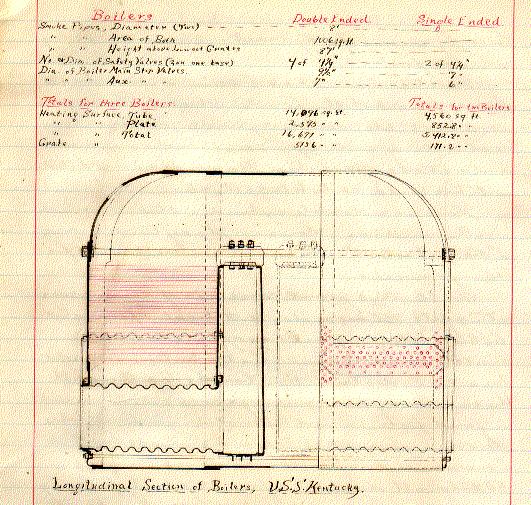 Boilers Double Ended Single Ended
Smoke Pipes, Diameter (Two) 8'
" " Area of Both
" " Height above Lowest Grates
No. & Dia. of Safety Valves (2 on one base) 4 of 4½" 2 of 4½"
Dia. of Boiler Main Stop Valves. 9½" 7"
" " " Aux. " 7" 6"
Totals for three Boilers. Totals for two Boilers
Heating Surface, Tube 14,096 sq. ft. 4,560 sq. ft.
" " Plate 2,575 " " 852.8 " "
" " Total 16,671 " " 5,412.8 " "
Grate " 171.2 " "
Longitudinal Section of Boilers, U.S.S. Kentucky.